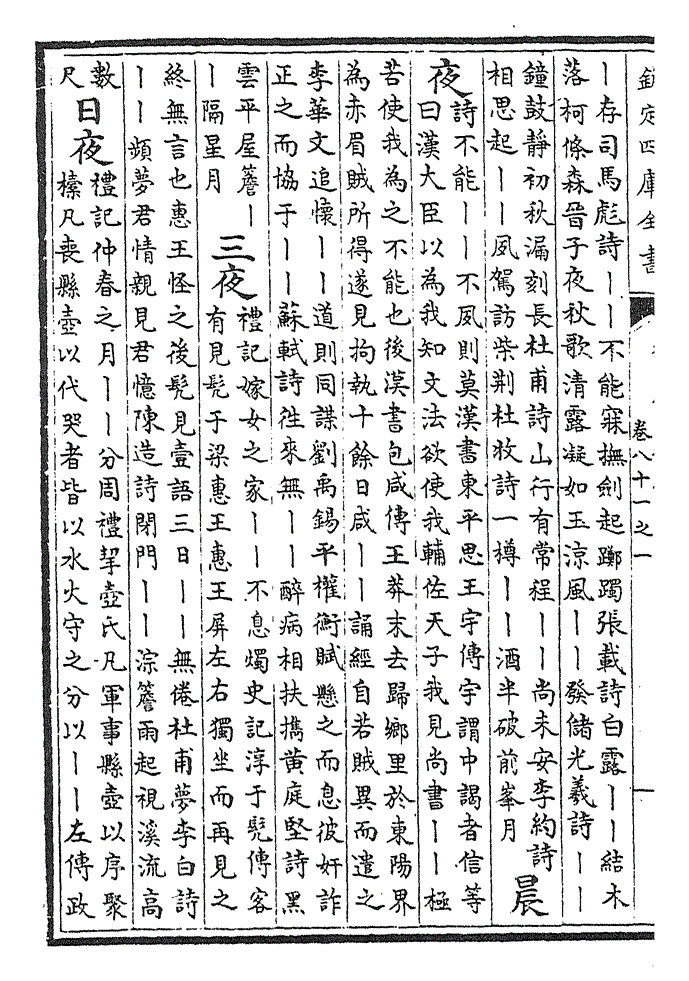 欽定四庫全書
卷八十一之一
丨存司馬彪詩丨丨不能寐撫劍起躑躅張載詩白露丨丨結木
落柯條森晉子夜秋歌清露凝如玉涼風丨丨發儲光羲詩丨丨
鐘鼓靜初秋漏刻長杜甫詩山行有常程丨丨尚未安李約詩
相思起丨丨夙駕訪柴荆杜牧詩一樽丨丨酒半破前峯月
晨
夜
詩不能丨丨不夙則莫漢書東平思王宇傳宇謂中謁者信等
曰漢大臣以為我知文法欲使我輔佐天子我見尚書丨丨極
苦使我為之不能也後漢書包咸傳王莽末去歸鄉里於東陽界
為赤眉賊所得遂見拘執十餘日咸丨丨誦經自若賊異而遣之
李華文追懷丨丨道則同謀劉禹錫平權衡賦懸之而息彼奸詐
正之而協于丨丨蘇軾詩徃來無丨丨醉病相扶攜黄庭堅詩黑
雲平屋簷丨
丨隔星月
三夜
禮記嫁女之家丨丨不息燭史記淳于髠傳客
有見髠于梁惠王惠王屏左右獨坐而再見之
終無言也惠王怪之後髠見壹語三日丨丨無倦杜甫夢李白詩
丨丨頻夢君情親見君憶陳造詩閉門丨丨淙簷雨起視溪流高
數
尺
日夜
禮記仲春之月丨丨分周禮挈壺氏凡軍事縣壺以序聚
榛凡喪縣壺以代哭者皆以水火守之分以丨丨左傳政